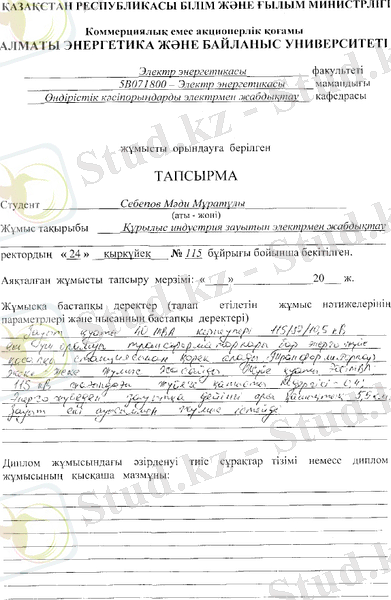 ҚАЗАҚСТАН РЕСПУБЛИКАСЫ БІЛІМ ЖӘНЕ ҒЫЛЫМ МИНИСТРЛІГІ
Коммерциялық емес акционерлік қоғамы
АЛМАТЫ ЭНЕРГЕТИКА ЖӘНЕ БАЙЛАНЫС УНИВЕРСИТЕТІ
Электр энергетикасы факультеті
5В071800 – Электр энергетикасы мамандығы
Өндірістік кәсіпорындарды электрмен жабдықтау кафедрасы
жұмысты орындауға берілген
ТАПСЫРМА
Студент Себепов Мәди Мұратұлы
(аты - жөні)
Жұмыс тақырыбы Құрылыс индустрия зауытын электрмен жабдықтау
ректордың «24» қыркүйек № 115 бұйрығы бойынша бекітілген.
Аяқталған жұмысты тапсыру мерзімі: « » 20 ж.
Жұмысқа бастапқы деректер (талап етілетін жұмыс нәтижелерінің
параметрлері және нысанның бастапқы деректері)
40 МВА 115/37/10,5 кВ
орамды трансформаторлары бар энергожүйе
станциясынан қорек алады
және жұмыс жасайды
115 кВ
дейінгі ара қашықтық 5,5 км.
зауыт екі ауысыммен жұмыс істейді
Диплом жұмысындағы әзірденуі тиіс сұрақтар тізімі немесе диплом
жұмысының қысқаша мазмұны:
Stud.kz - Stud.kz